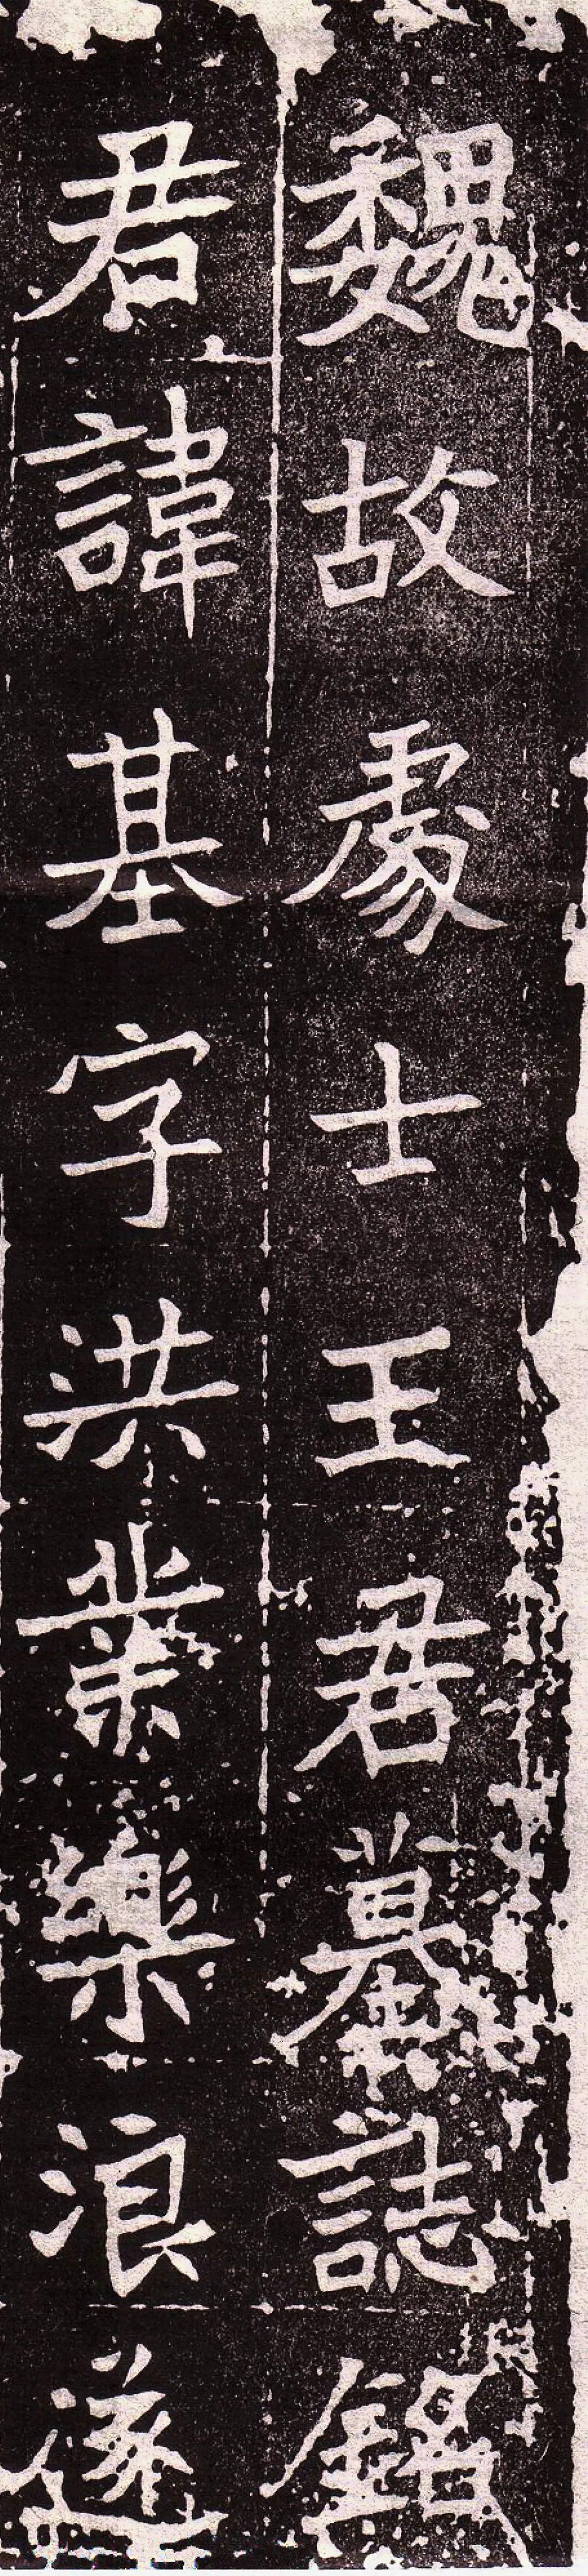 魏故處士王君墓誌銘
君諱基字洪業樂浪遂